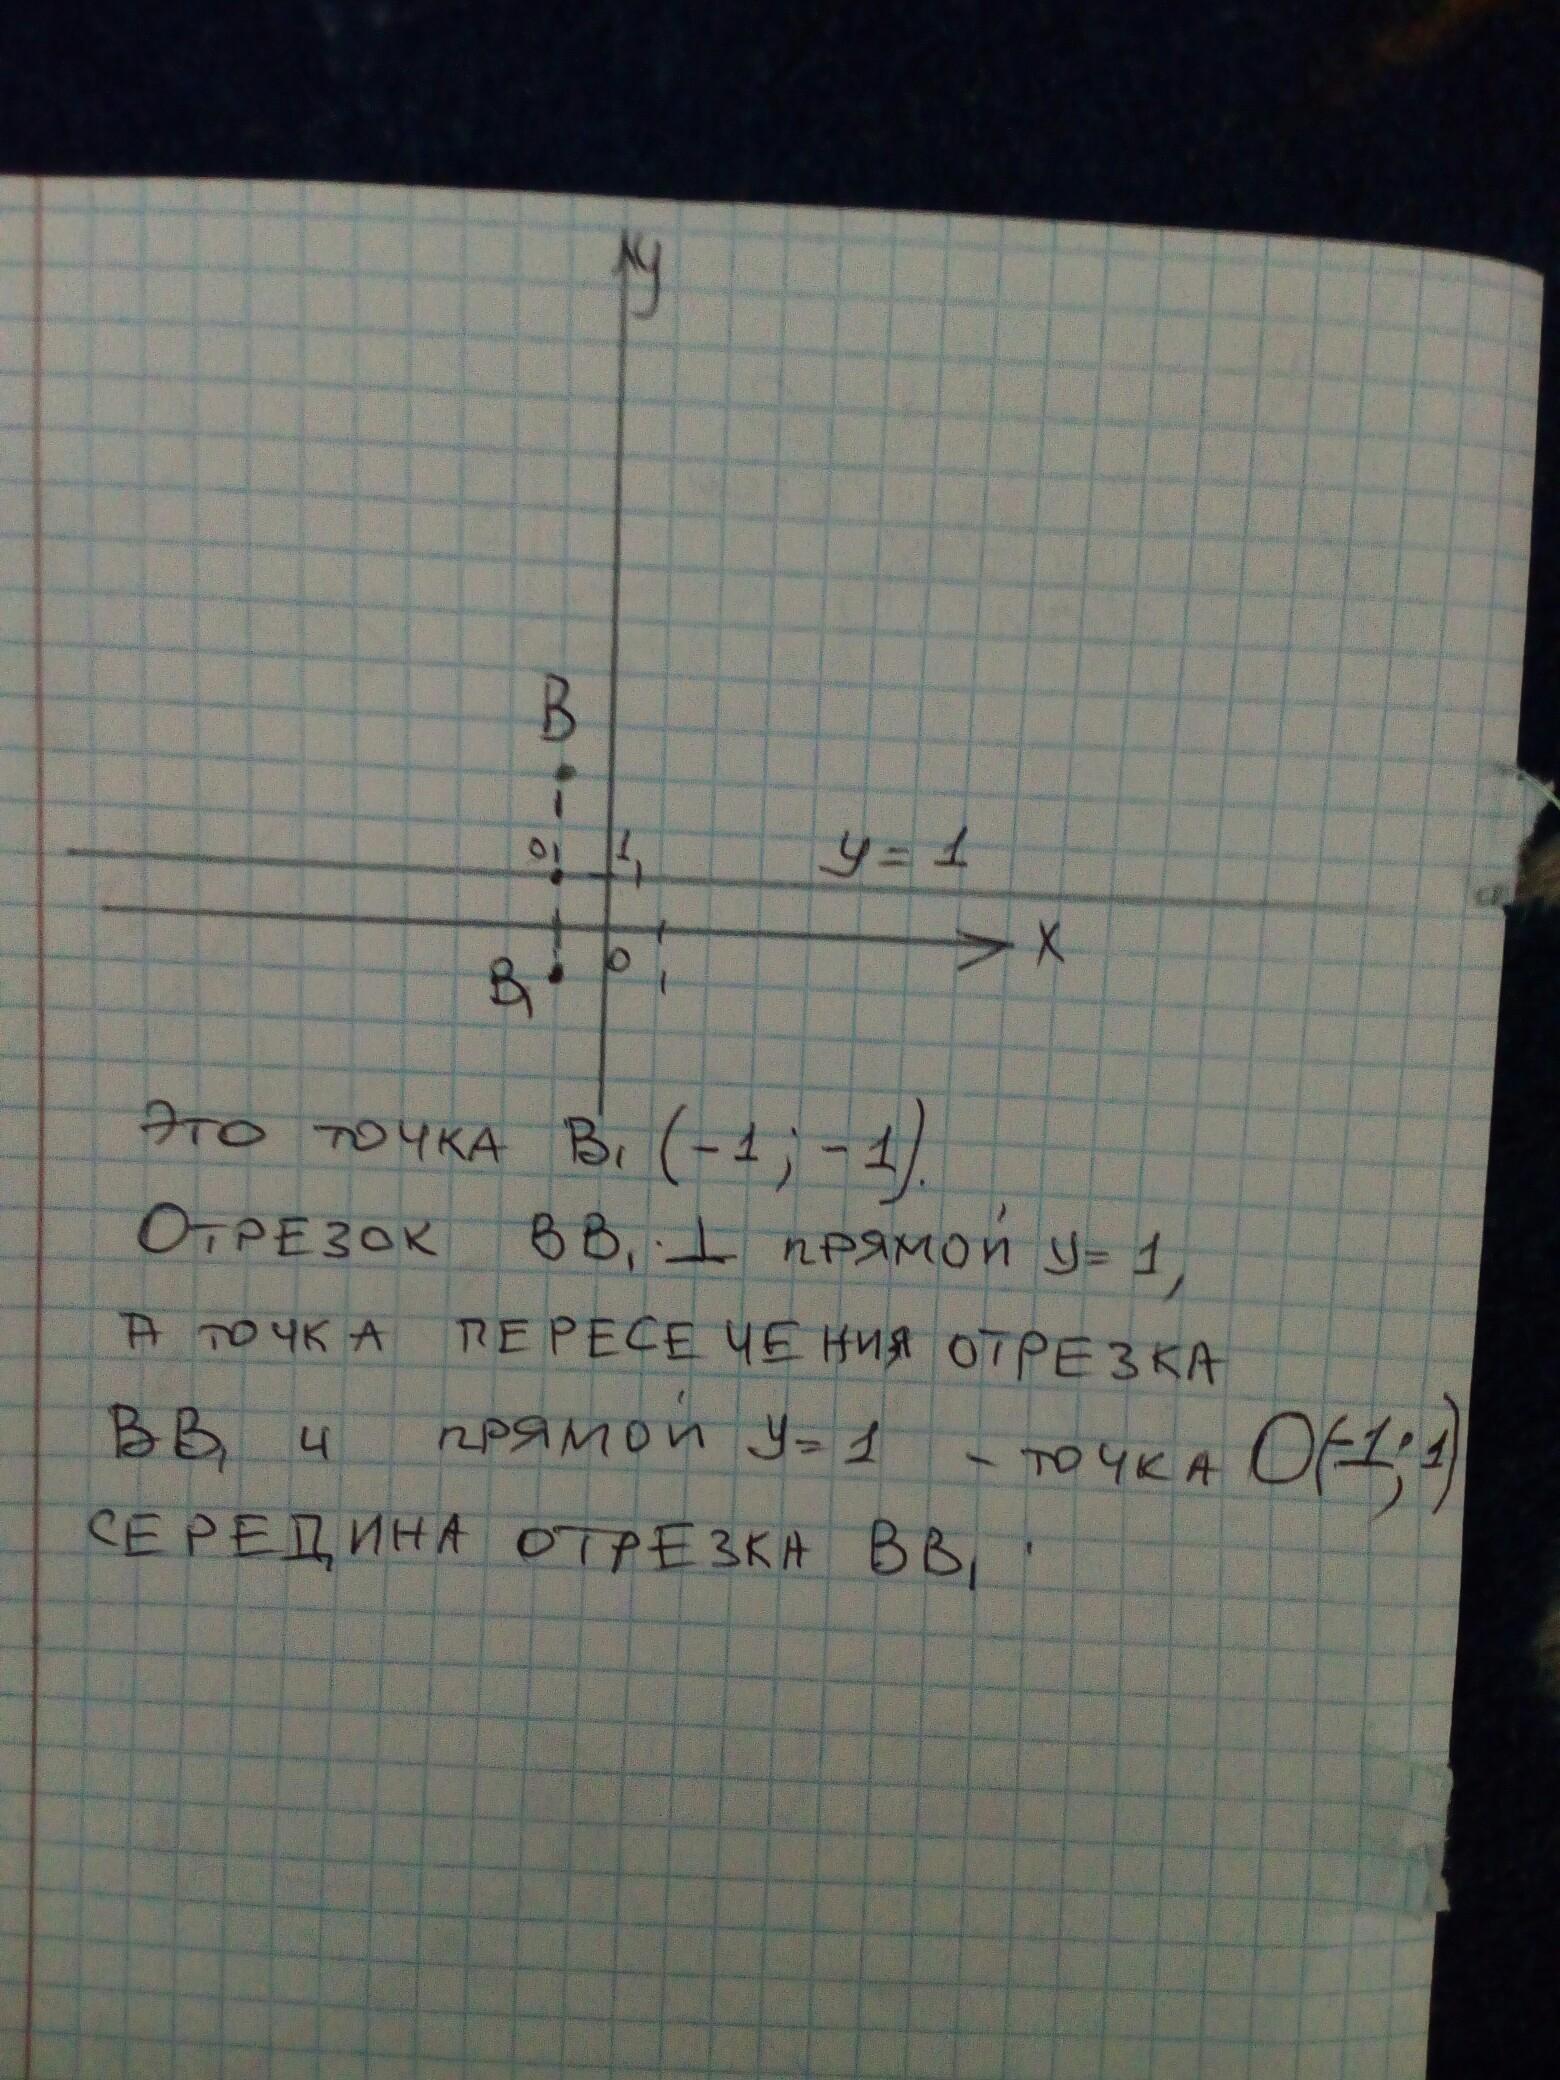 y
B
O 1
y = 1
x
B₁ 0 1
Это точка B₁ (-1; -1).
Отрезок BB₁ ⊥ прямой y = 1,
а точка пересечения отрезка
BB₁ и прямой y = 1 - точка O(-1; 1)
середина отрезка BB₁.